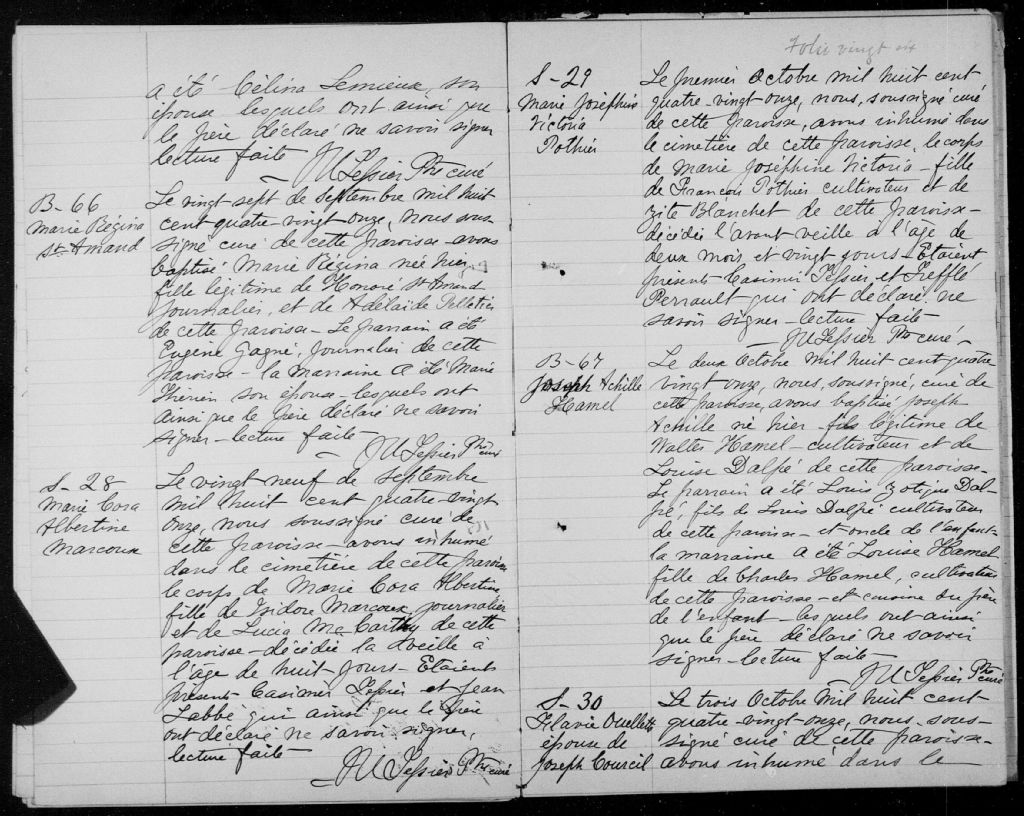 a été Célina Lemieux, son
épouse lesquels ont ainsi que
le père déclaré ne savoir signer
lecture faite
J U Tessier Ptre curé
B- 66
Marie Régina
St. Amand
Le vingt sept de septembre mil huit
cent quatre-vingt onze, nous sous
signé curé de cette paroisse avons
baptisé Marie Régina née hier,
fille légitime de Honoré St Amand
journalier, et de Adélaïde Pelletier
de cette paroisse - Le parrain a été
Eugène Gagné, journalier de cette
paroisse - la marraine a été Marie
son épouse - lesquels ont
ainsi que le père déclaré ne savoir
signer - lecture faite -
J U Tessier Ptre curé
S- 28
Marie Cora
Albertine
Marcoux
Le vingt neuf de septembre
mil huit cent quatre-vingt
onze, nous soussigné curé de
cette paroisse - avons inhumé
dans le cimetière de cette paroisse
le corps de Marie Cora Albertine
fille de Isidore Marcoux journalier
et de Lucia Mc Carthy de cette
paroisse - décédée la veille à
l'âge de huit jours - Etaient
présents - Casimir Tessier et Jean
Labbé qui ainsi que le père
ont déclaré ne savoir signer,
lecture faite
J U Tessier Ptre curé
Folio vingt six
S- 29
Marie Joséphine
Victoria
Pothier
Le premier Octobre mil huit cent
quatre-vingt onze, nous, soussigné curé
de cette paroisse, avons inhumé dans
le cimetière de cette paroisse, le corps
de Marie Joséphine Victoria - fille
de François Pothier cultivateur et de
Zite Blanchet de cette paroisse -
décédée l'avant veille a l'âge de
deux mois et vingt jours - Etaient
présents - Casimir Tessier, et Trefflé
Perrault qui ont déclaré ne
savoir signer - lecture faite -
J U Tessier Ptre curé -
B- 67
Joseph Achille
Hamel
Le deux Octobre mil huit cent quatre
vingt onze, nous, soussigné, curé de
cette paroisse, avons baptisé Joseph
Achille né hier - fils légitime de
Walter Hamel - cultivateur et de
Louise Dalpé de cette paroisse -
Le parrain a été Louis Zotique Dal-
pé, fils de Louis Dalpé cultivateur
de cette paroisse - et oncle de l'enfant -
la marraine a été Louise Hamel
fille de Charles Hamel, cultivateur
de cette paroisse - et cousine du père
de l'enfant - lesquels ont ainsi
que le père déclaré ne savoir
signer - lecture faite -
J U Tessier Ptre curé
S- 30
Flavie Ouellette
épouse de
Joseph Courcil
Le trois Octobre mil huit cent
quatre-vingt-onze, nous - sous-
signé curé de cette paroisse -
avons inhumé dans le